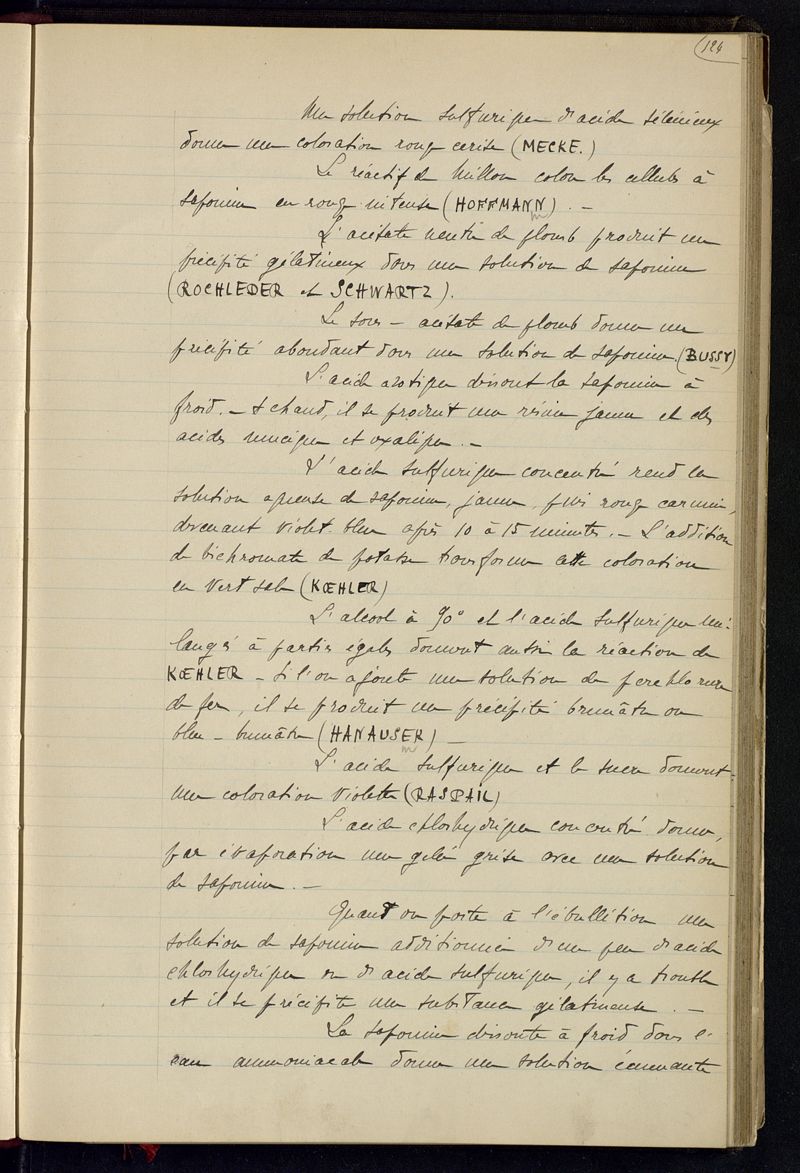 124
Une solution sulfurique d'acide sélénieux
donne une coloration rouge cerise (MECKE.)
Le réactif de Millon colore les cellules à
saponine en rouge intense (HOFFMANN). —
L'acétate neutre de plomb produit un
précipité gélatineux dans une solution de saponine
(ROCHLEDER et SCHWARTZ).
Le sous-acétate de plomb donne un
précipité abondant dans une solution de saponine. (BUSSY)
L'acide azotique dissout la saponine à
froid. — A chaud, il se produit une résine jaune et des
acides mucique et oxalique. —
L'acide sulfurique concentré rend la
solution aqueuse de saponine, jaune, puis rouge carmin,
devenant violet-bleu après 10 à 15 minutes. — L'addition
de bichromate de potasse transforme cette coloration
en vert sale (KŒHLER)
L'alcool à 90° et l'acide sulfurique mé-
langés à parties égales donnent aussi la réaction de
KŒHLER — Si l'on ajoute une solution de perchlorure
de fer, il se produit un précipité brunâtre ou
bleu-brunâtre (HANAUSER) —
L'acide sulfurique et le sucre donnent
une coloration violette (RASPAIL)
L'acide chlorhydrique concentré donne,
par évaporation une gelée grise avec une solution
de saponine. —
Quand on porte à l'ébullition une
solution de saponine additionnée d'un peu d'acide
chlorhydrique ou d'acide sulfurique, il y a trouble
et il se précipite une substance gélatineuse. —
La saponine dissoute à froid dans l'
eau ammoniacale donne une solution écumante